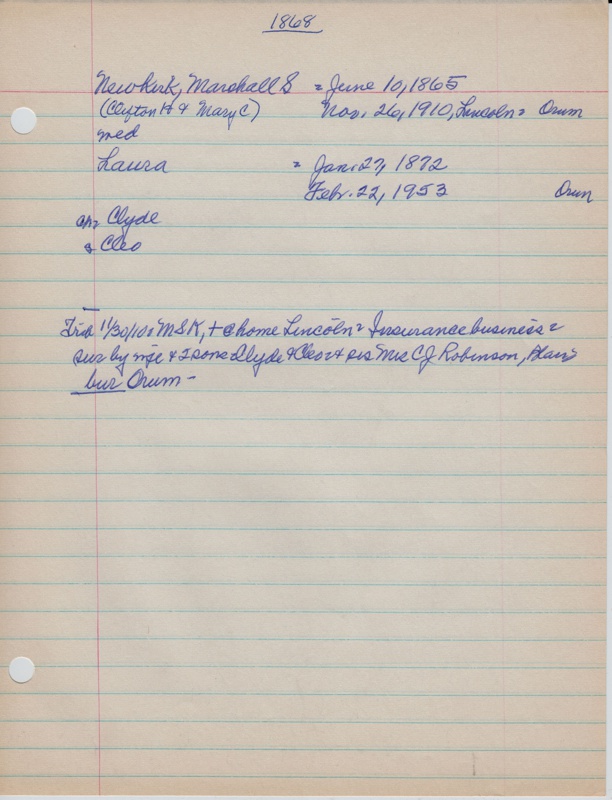 1868
Newkirk, Marshall S = June 10, 1865
(Clifton H & Mary C) Nov. 26, 1910, Lincoln = Orum
med
Laura = Jan. 27, 1872
Febr. 22, 1953 Orum
ch= Clyde
& Cleo
Trib 11/30/10: M S K, + @ home Lincoln = Insurance business =
sur by wfe & 2 sons Clyde & Cleo & sis Mrs C J Robinson, Blair
bur Orum -